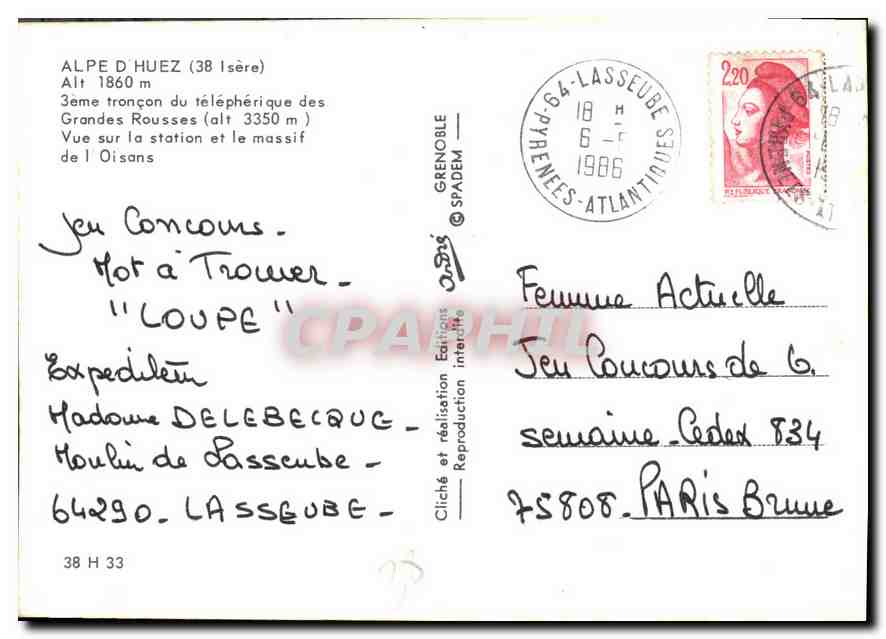 ALPE D'HUEZ (38 Isère)
Alt 1860 m
3ème tronçon du téléphérique des
Grandes Rousses (alt 3350 m)
Vue sur la station et le massif
de l'Oisans
Jeu Concours -
Mot à Trouver -
"LOUPE"
Expéditeur
Madame DELEBECQUE -
Moulin de Lasseube -
64290 - LASSEUBE -
38 H 33
Cliché et réalisation Editions André GRENOBLE
Reproduction interdite © SPADEM
64-LASSEUBE
18 H
6 -
1986
PYRENEES-ATLANTIQUES
2,20
REPUBLIQUE FRANÇAISE
Femme Actuelle
Jeu Concours de 6.
semaine - Cedex 834
75808 - PARIS Brune
CPAPHIL